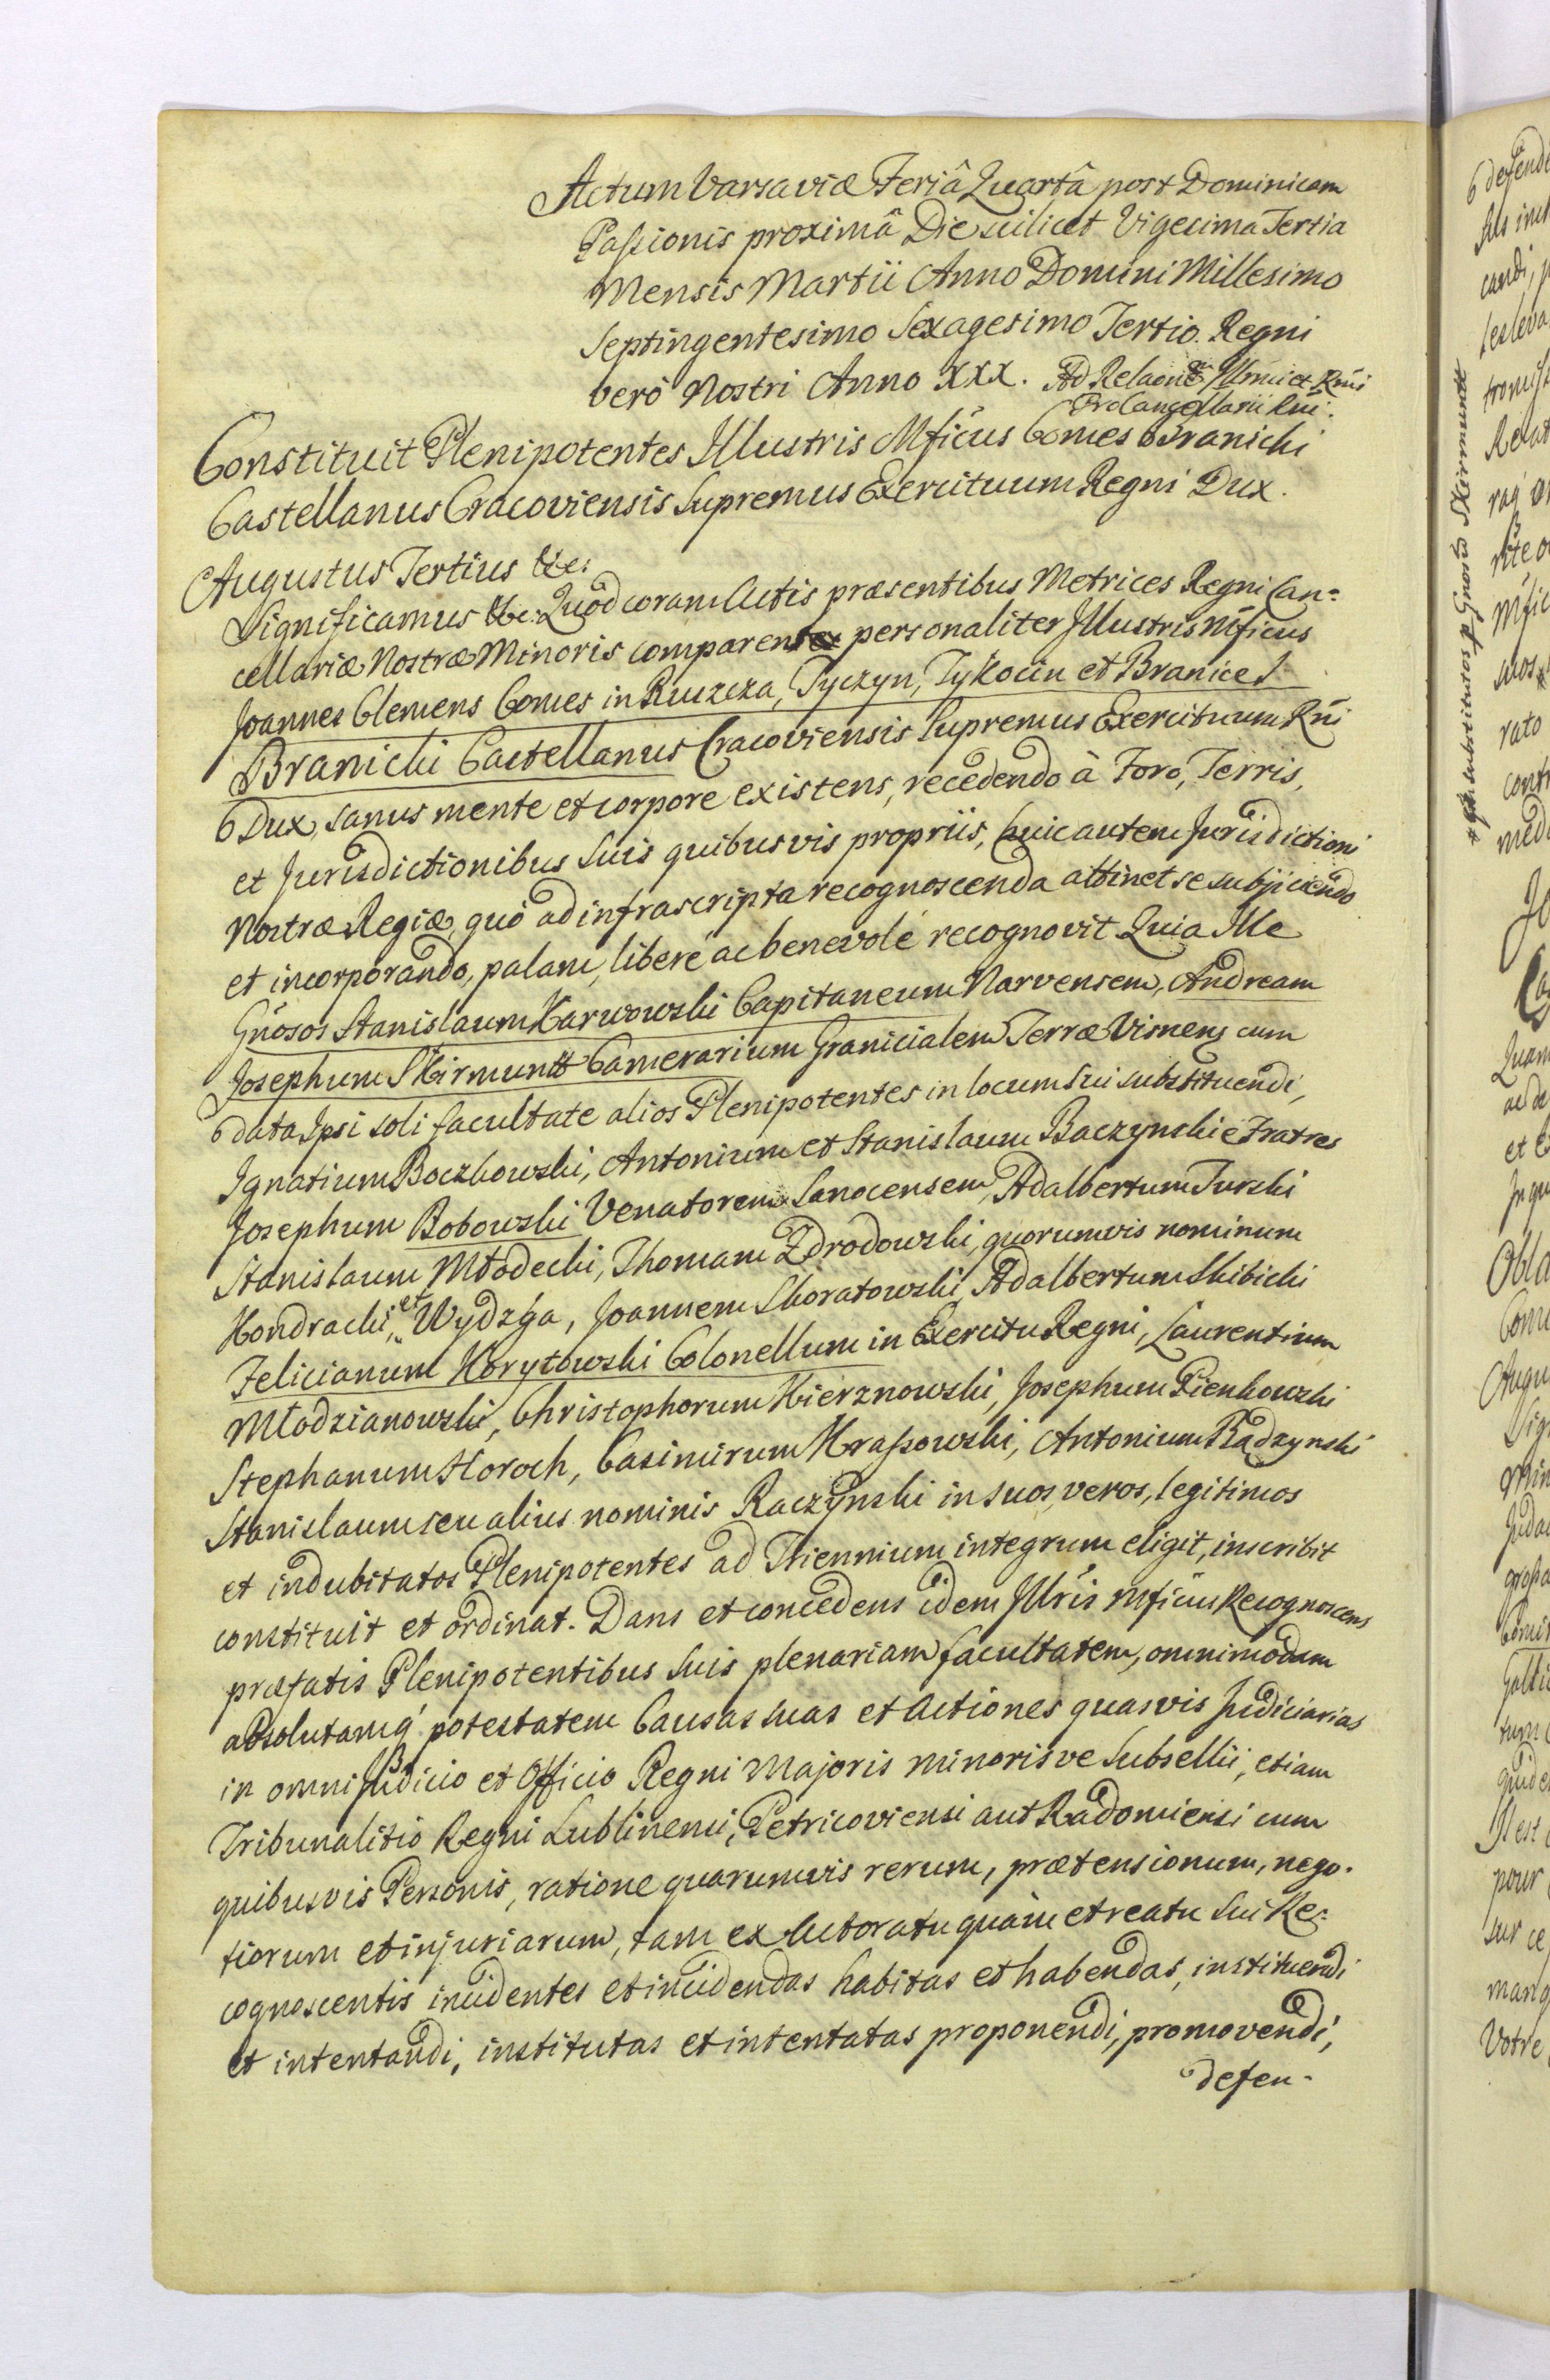 Actum Varsaviæ Feriâ Quartâ post Dominicam
Passionis proximâ Die scilicet Vigesima Tertia
Mensis Martii Anno Domini Millesimo
Septingentesimo Sexagesimo Tertio. Regni
verò Nostri Anno XXX. Ad Relaonẽ Illmi et Rmi
ProCancellarii Rni.
Constituit Plenipotentes Illustris Mficus Comes Branicki
Castellanus Cracoviensis Supremus Exercituum Regni Dux.
Augustus Tertius &c.
Significamus &c. Quòd coram Actis præsentibus Metrices Regni Can=
cellariæ Nostræ Minoris comparens personaliter Illustris Mficus
Joannes Clemens Comes in Ruszcza, Tyczyn, Tykocin et Branice
Branicki Castellanus Cracoviensis Supremus Exercituum Rni
Dux, sanus mente et corpore existens, recedendo à Foro, Terris,
et Jurisdictionibus suis quibusvis propriis, huic autem Jurisdictioni
Nostræ Regiæ, quò ad infrascripta recognoscenda attinet se subjiciendo
et incorporando, palam, liberè ac benevolè recognovit Quia Ille
Gnosos Stanislaum Karwowski Capitaneum Narvensem, Andream
Josephum Skirmuntt Camerarium Granicialem Terræ Visnens cum
data Ipsi soli facultate alios Plenipotentes in locum sui substituendi,
Ignatium Boczkowski, Antonium et Stanislaum Baczynskie Fratres
Josephum Bobowski Venatorem Sanocensem, Adalbertum Turski
Stanislaum Młodecki, Thomam Zdrodowski, quorumvis nominum
Kondracki, et Wydzga, Joannem Skoratowski, Adalbertum Skibicki
Felicianum Korytowski Colonellum in Exercitu Regni, Laurentium
Młodzianowski, Christophorum Kierznowski, Josephum Pienkowski
Stephanum Horoch, Casimirum Krassowski, Antonium Radzynski
Stanislaum seu alius nominis Raczynski in suos, veros, legitimos
et indubitatos Plenipotentes ad Triennium integrum eligit, inscribit
constituit et ordinat. Dans et concedens idem Illris Mficus Recognoscens
præfatis Plenipotentibus suis plenariam facultatem, omnimodam
absolutamq potestatem Causas suas et Actiones quasvis Judiciarias
in omni Judicio et Officio Regni Majoris minorisve Subsellii, etiam
Tribunalitio Regni Lublinensi, Petricoviensi aut Radomiensi cum
quibusvis Personis, ratione quarumvis rerum, prætensionum, nego=
tiorum et injuriarum, tam ex Actoratu quàm et reatu sui Re=
cognoscentis incidentes et incidendas habitas et habendas, instituendi
et intentandi, institutas et intentatas proponendi, promovendi,
defen-